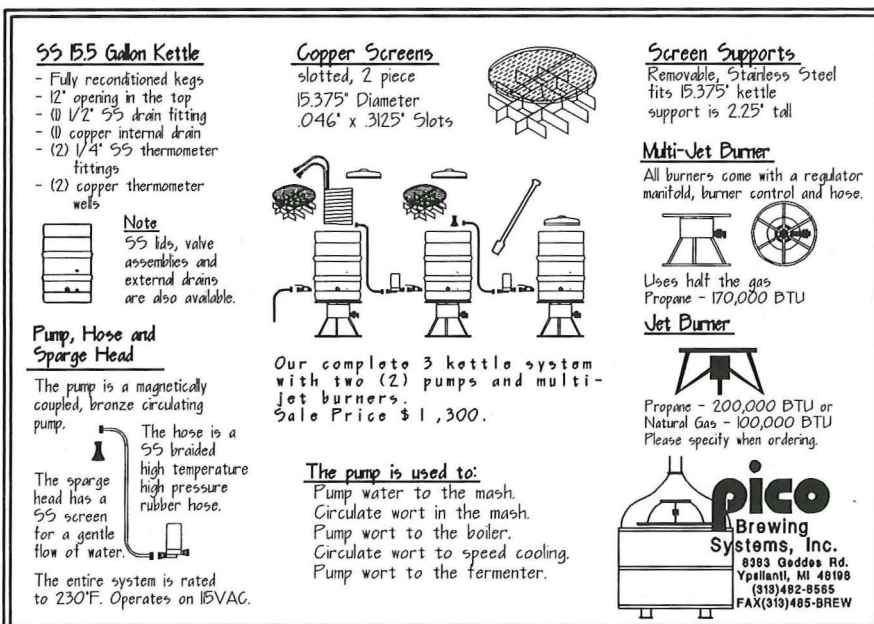 SS 15.5 Gallon Kettle
- Fully reconditioned kegs
- 12" opening in the top
- (1) 1/2" SS drain fitting
- (1) copper internal drain
- (2) 1/4" SS thermometer
fittings
- (2) copper thermometer
wells
Note
SS lids, valve
assemblies and
external drains
are also available.
Pump, Hose and
Sparge Head
The pump is a magnetically
coupled, bronze circulating
pump.
The hose is a
SS braided
high temperature
high pressure
rubber hose.
The sparge
head has a
SS screen
for a gentle
flow of water.
The entire system is rated
to 230°F. Operates on 115VAC.
Copper Screens
slotted, 2 piece
15.375" Diameter
.046" x .3125" Slots
Our complete 3 kettle system
with two (2) pumps and multi-
jet burners.
Sale Price $1,300.
The pump is used to:
Pump water to the mash.
Circulate wort in the mash.
Pump wort to the boiler.
Circulate wort to speed cooling.
Pump wort to the fermenter.
Screen Supports
Removable, Stainless Steel
fits 15.375" kettle
support is 2.25" tall
Multi-Jet Burner
All burners come with a regulator
manifold, burner control and hose.
Uses half the gas
Propane - 170,000 BTU
Jet Burner
Propane - 200,000 BTU or
Natural Gas - 100,000 BTU
Please specify when ordering.
pico
Brewing
Systems, Inc.
8383 Geddes Rd.
Ypsilanti, MI 48198
(313)482-8565
FAX(313)485-BREW